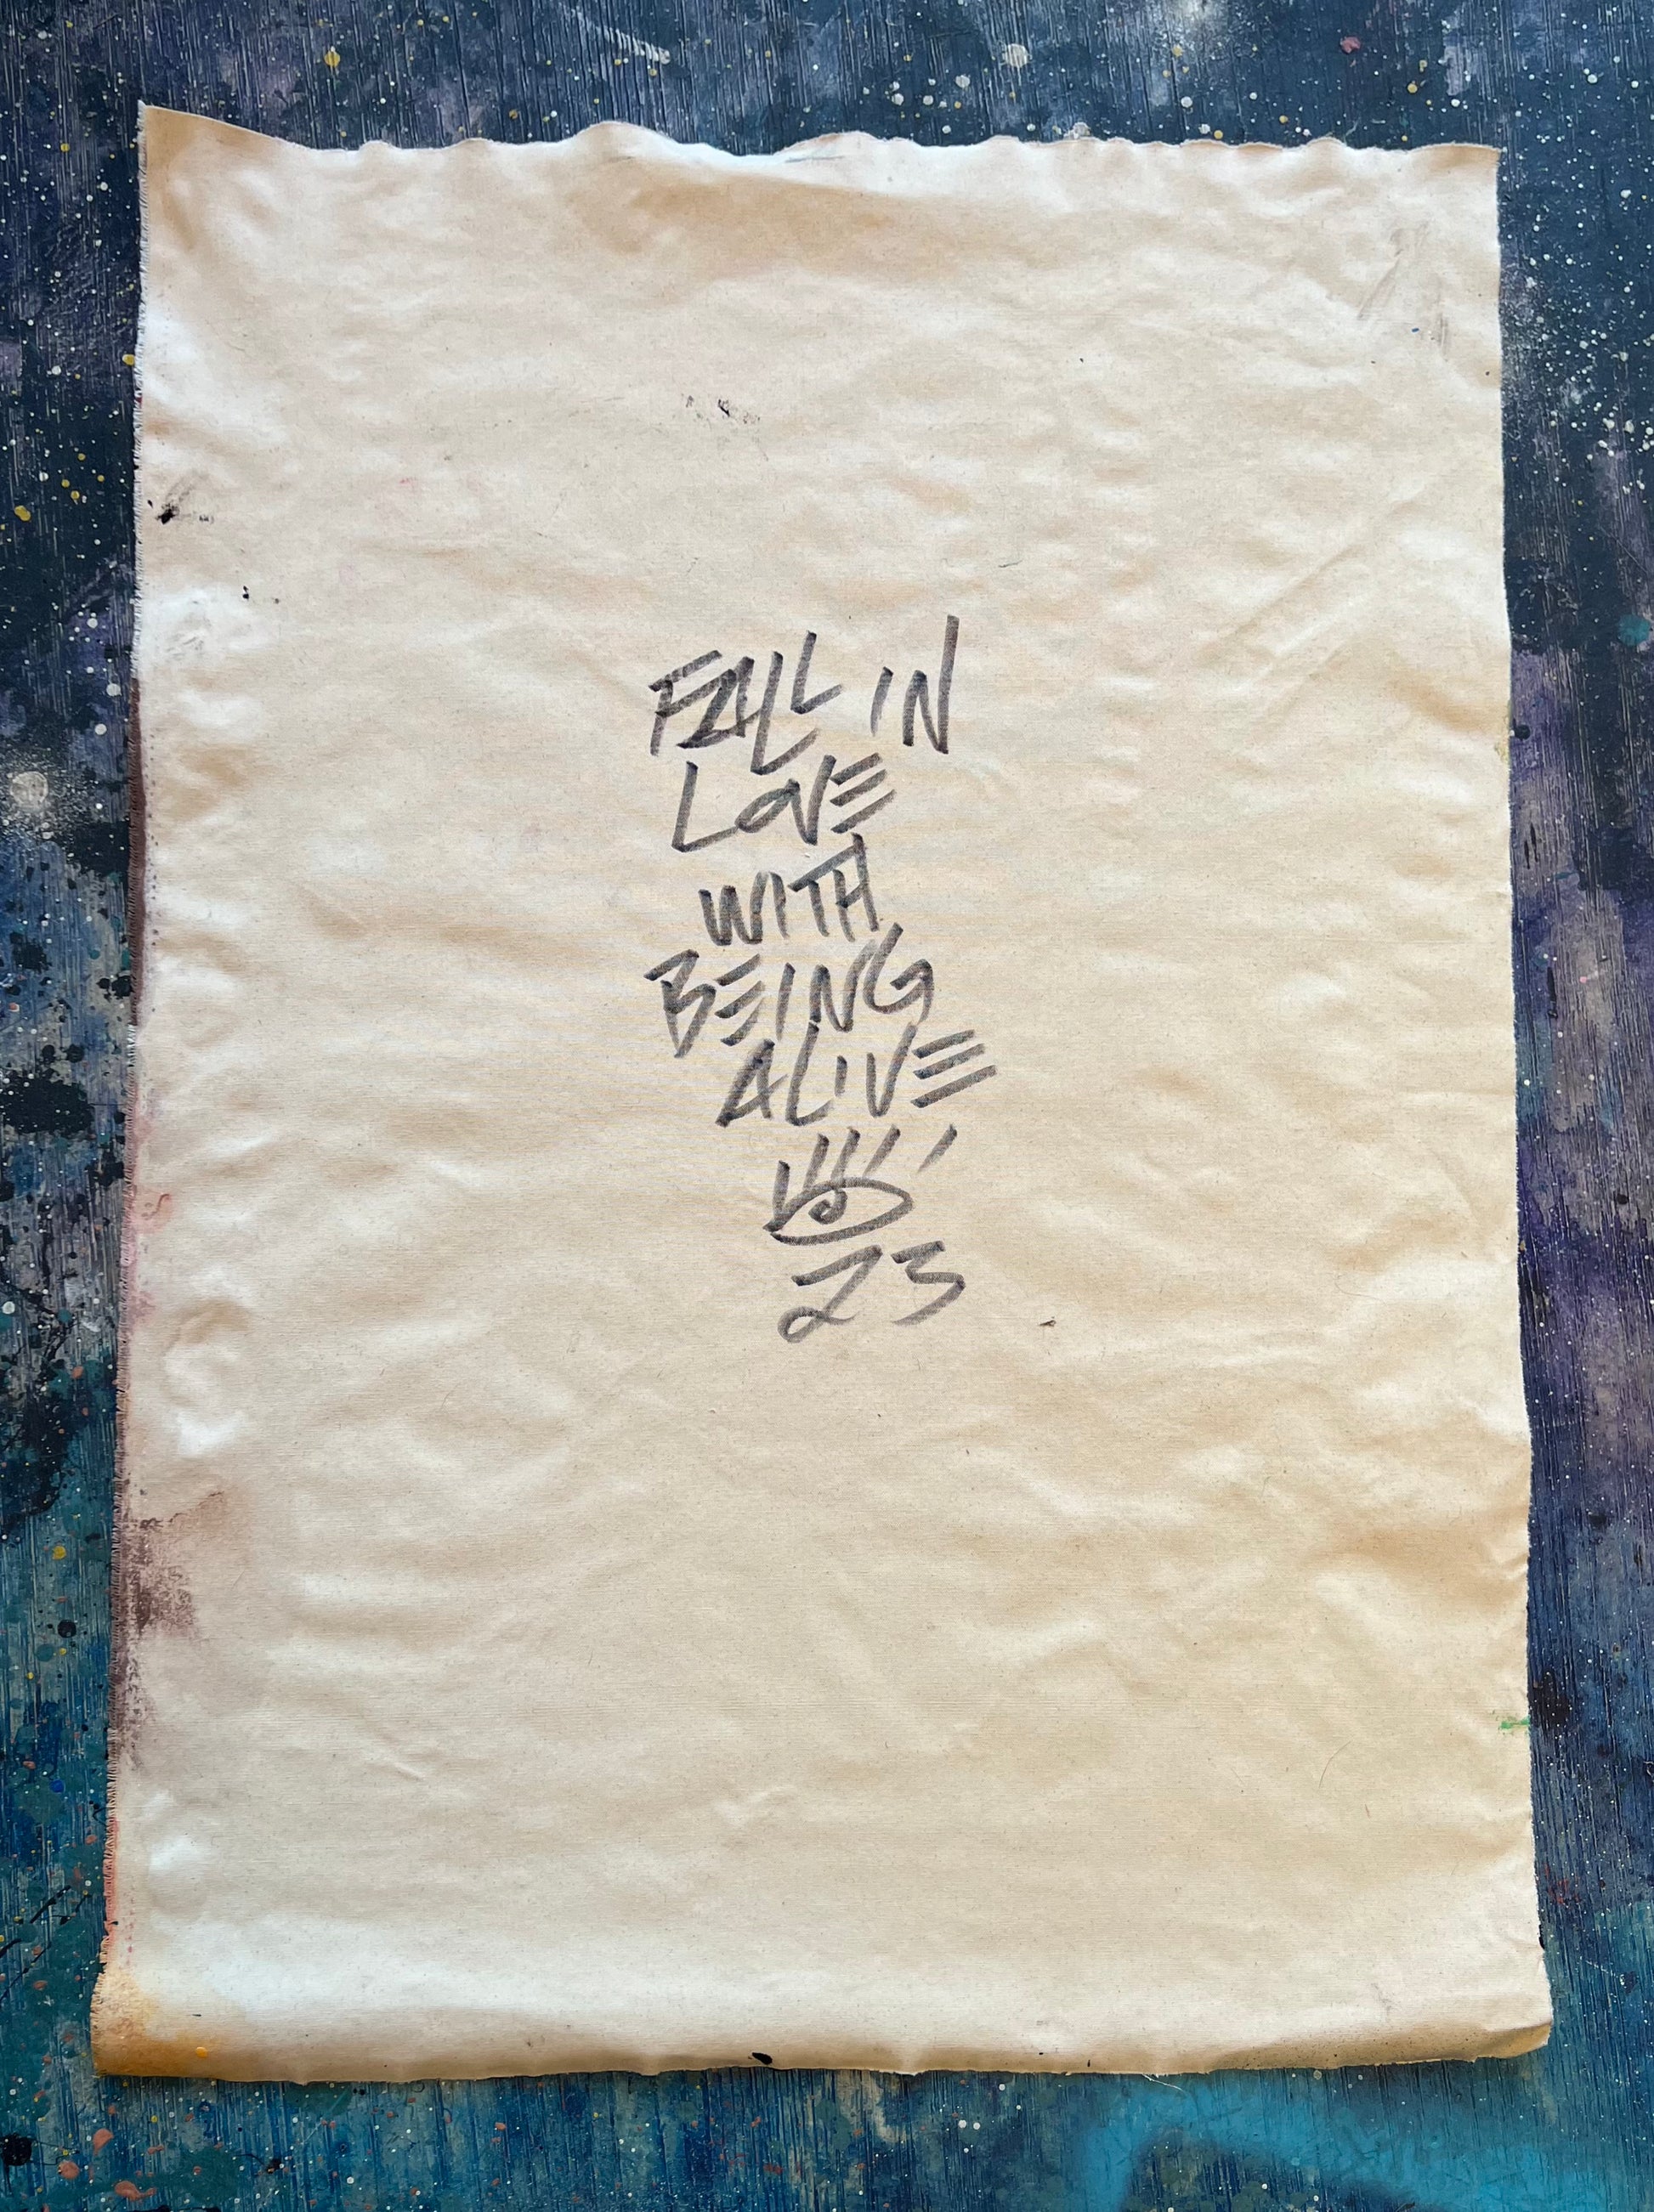 FALL IN
LOVE
WITH
BEING
ALIVE
23